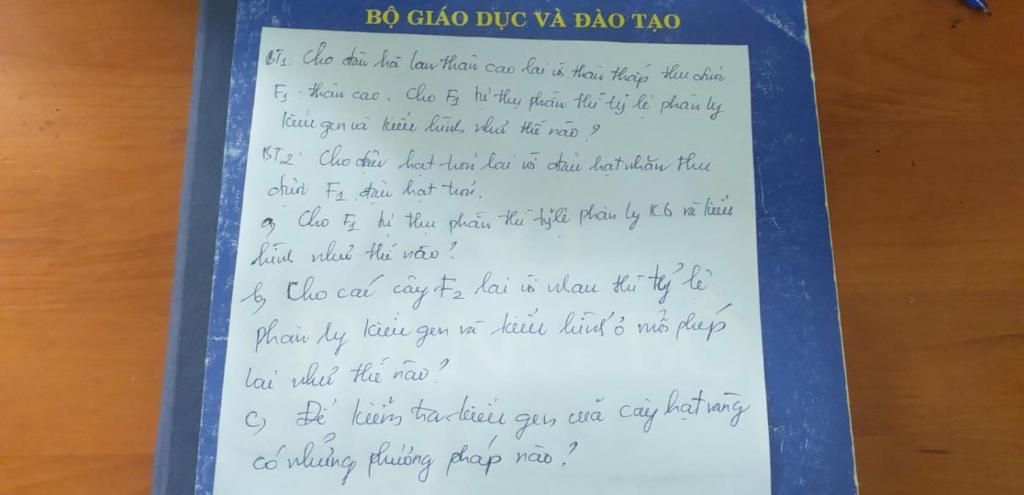 BỘ GIÁO DỤC VÀ ĐÀO TẠO
BT1: Cho đậu hà lan thân cao lai với thân thấp thu được
F1: thân cao. Cho F1 tự thụ phấn thì tỷ lệ phân ly
kiểu gen và kiểu hình như thế nào?
BT2: Cho đậu hạt trơn lai với đậu hạt nhăn thu
được F1 đậu hạt trơn.
a, Cho F1 tự thụ phấn thì tỷ lệ phân ly KG và kiểu
hình như thế nào?
b, Cho các cây F2 lai với nhau thì tỷ lệ
phân ly kiểu gen và kiểu hình ở mỗi phép
lai như thế nào?
c, Để kiểm tra kiểu gen của cây hạt vàng
có những phương pháp nào?